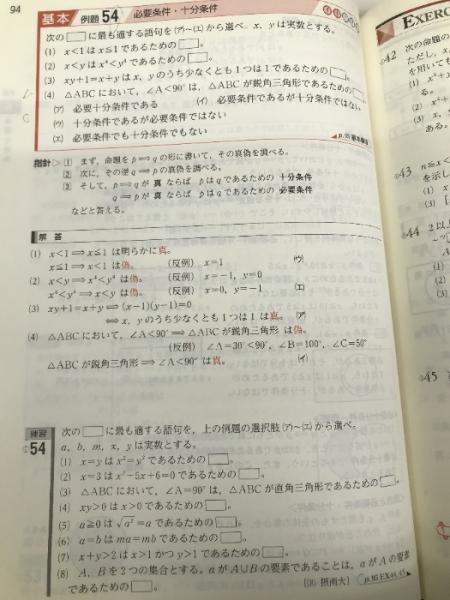 94
基本 例題 54 必要条件・十分条件
次の□に最も適する語句を(ア)~(エ)から選べ。x, yは実数とする。
(1) x<1はx≦1であるための□。
(2) x<yはx⁴<y⁴であるための□。
(3) xy+1=x+yはx, yのうち少なくとも1つは1であるための□。
(4) △ABCにおいて, ∠A<90°は, △ABCが鋭角三角形であるための□。
(ア) 必要十分条件である (イ) 必要条件であるが十分条件ではない
(ウ) 十分条件であるが必要条件ではない
(エ) 必要条件でも十分条件でもない
指針 ① まず, 命題をp⟹qの形に書いて, その真偽を調べる。
② 次に, その逆q⟹pの真偽を調べる。
③ そして, p⟹qが真ならばpはqであるための十分条件
q⟹pが真ならばpはqであるための必要条件
などと答える。
解答
(1) x<1⟹x≦1は明らかに真。
x≦1⟹x<1は偽。 (反例) x=1 (ウ)
(2) x<y⟹x⁴<y⁴は偽。 (反例) x=-1, y=0
x⁴<y⁴⟹x<yは偽。 (反例) x=0, y=-1 (エ)
(3) xy+1=x+y⟺(x-1)(y-1)=0
⟺x, yのうち少なくとも1つは1は真。 (ア)
(4) △ABCにおいて, ∠A<90°⟹△ABCが鋭角三角形 は偽。
(反例) ∠A=30°<90°, ∠B=100°, ∠C=50°
△ABCが鋭角三角形⟹∠A<90°は真。 (イ)
練習 54 次の□に最も適する語句を, 上の例題の選択肢(ア)~(エ)から選べ。
a, b, m, x, yは実数とする。
(1) x=yはx²=y²であるための□。
(2) x=3はx²-5x+6=0であるための□。
(3) △ABCにおいて, ∠A=90°は, △ABCが直角三角形であるための□。
(4) xy>0はx>0であるための□。
(5) a≧0は√a²=aであるための□。
(6) a=bはma=mbであるための□。
(7) x+y>2はx>1かつy>1であるための□。
(8) A, Bを2つの集合とする。aがA∪Bの要素であることは, aがAの要素
であるための□。 摂南大] p.95 EX
EXERC
42 次の命題の
ただし, x,
を用いても
(1) x²+
る。
(2) x²+
(3)
ある。
43 n≦x<
を示し
(1)
(3)
44 2以上
(1)
45